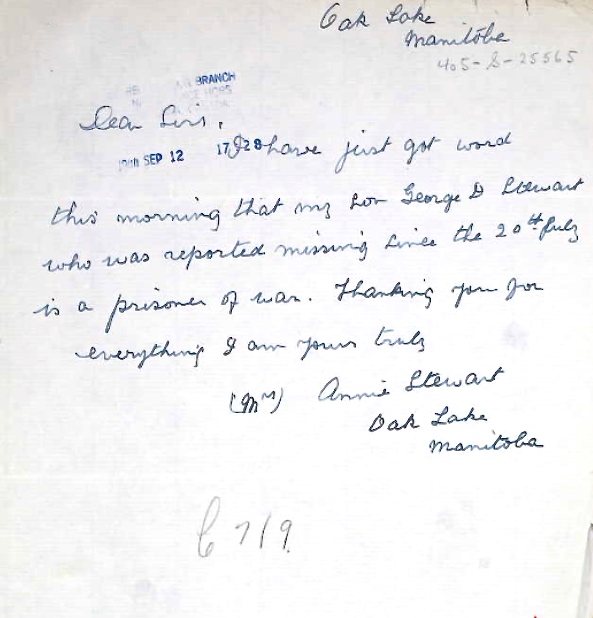 Oak Lake
Manitoba
405-S-25565
BRANCH
Dear Sirs,
SEP 12 17 28
I have just got word
this morning that my son George D Stewart
who was reported missing since the 20th July
is a prisoner of war. Thanking you for
everything I am yours truly
(Mrs) Annie Stewart
Oak Lake
Manitoba
C 719